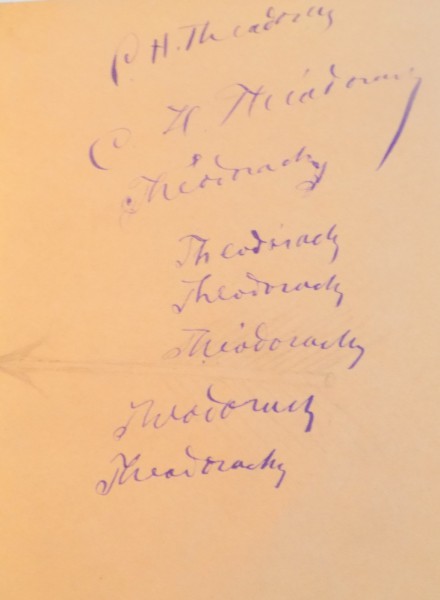 C. H. Theodoracky
C. H. Théodoracky
Théodoracky
Theodoracky
Theodoracky
Théodoracky
Theodoracky
Theodoracky